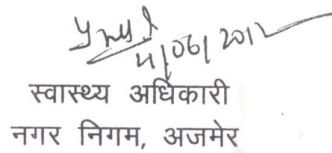 4/06/2012
स्वास्थ्य अधिकारी
नगर निगम, अजमेर